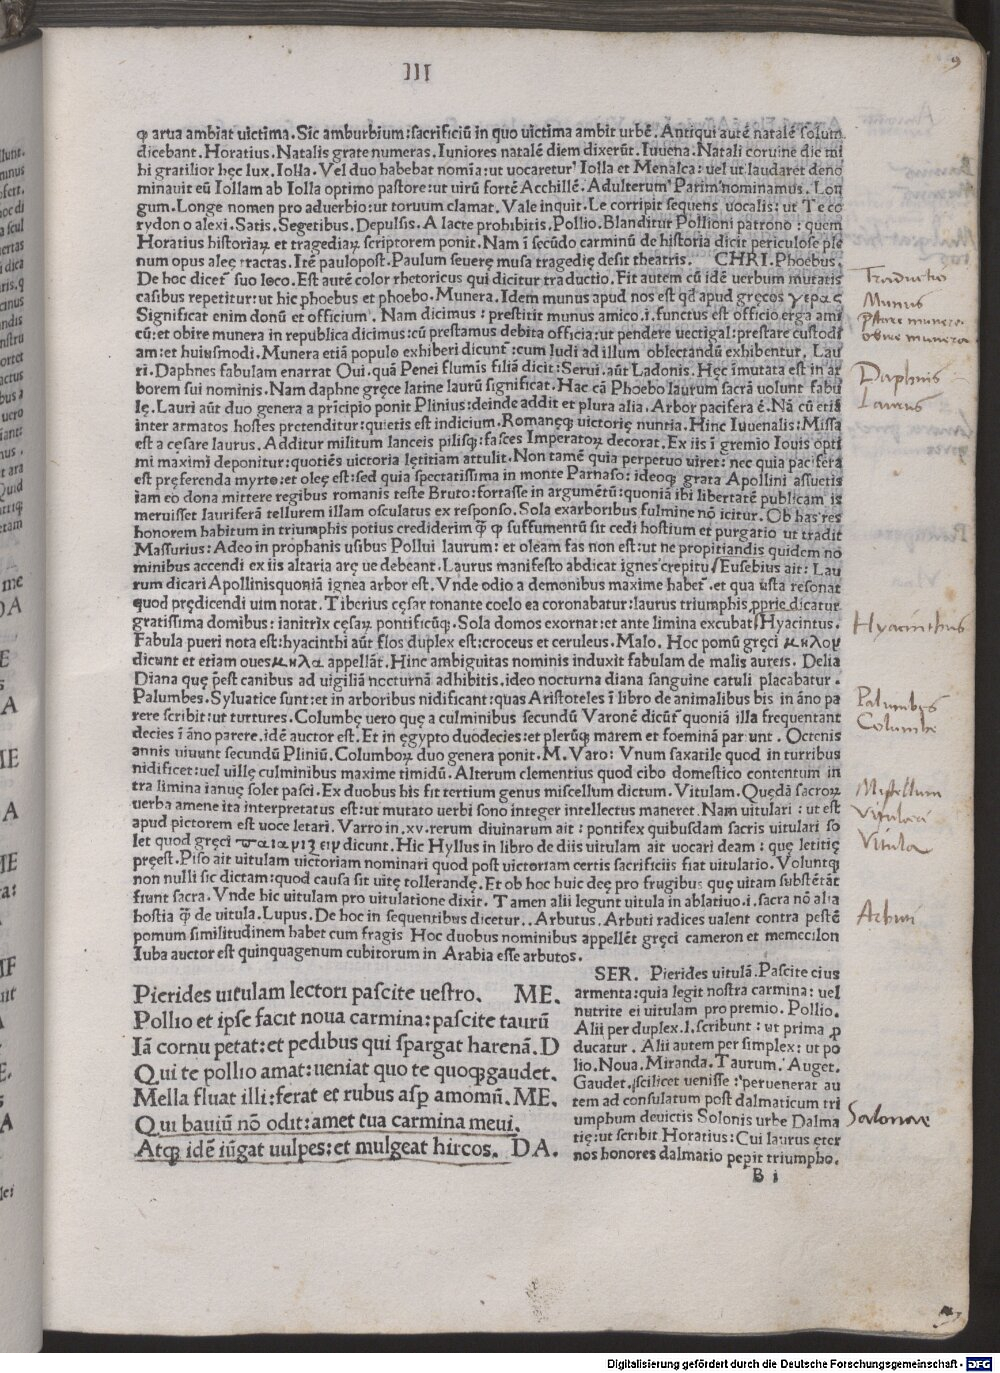 III
9
ꝙ arua ambiat uictima. Sic amburbium: sacrificiū in quo uictima ambit urbē. Antiqui autē natalē solum
dicebant. Horatius. Natalis grate numeras. Iuniores natalē diem dixerūt. Iuuena. Natali coruine die mi
hi gratilior hęc lux. Iolla. Vel duo habebat nomīa: ut uocaretur Iolla et Menalca: uel ut laudaret deno
minauit eū Iollam ab Iolla optimo pastore: ut uirū fortē Acchillē. Adulterum Parim nominamus. Lon
gum. Longe nomen pro aduerbio: ut toruum clamat. Vale inquit. Le corripit sequens uocalis: ut Te co
rydon o alexi. Satis. Segetibus. Depulsis. A lacte prohibitis. Pollio. Blanditur Pollioni patrono: quem
Horatius historiaꝝ et tragediaꝝ scriptorem ponit. Nam ī secūdo carminū de historia dicit periculose ple
num opus aleę tractas. Itē paulopost. Paulum seuerę musa tragedię desit theatris. CHRI. Phoebus.
De hoc dicet suo loco. Est autē color rhetoricus qui dicitur traductio. Fit autem cū idē uerbum mutatis
casibus repetitur: ut hic phoebus et phoebo. Munera. Idem munus apud nos est qđ apud gręcos γερας
Significat enim donū et officium. Nam dicimus: prestitit munus amico .i. functus est officio erga ami
cū: et obire munera in republica dicimus: cū prestamus debita officia: ut pendere uectigal: prestare custodi
am: et huiusmodi. Munera etiā populo exhiberi dicunt: cum ludi ad illum oblectandū exhibentur. Lau
ri. Daphnes fabulam enarrat Oui. quā Penei flumīs filiā dicit: Serui. aūt Ladonis. Hęc īmutata est in ar
borem sui nominis. Nam daphne gręce latine laurū significat. Hac cā Phoebo laurum sacrā uolunt fabu
lę. Lauri aūt duo genera a pricipio ponit Plinius: deinde addit et plura alia. Arbor pacifera ē. Nā cū etiā
inter armatos hostes pretenditur: quietis est indicium. Romanęꝗ uictorię nuntia. Hinc Iuuenalis: Missa
est a cęsare laurus. Additur militum lanceis pilisꝗ: fasces Imperatoꝝ decorat. Ex iis ī gremio Iouis opti
mi maximi deponitur: quotiēs uictoria lętitiam attulit. Non tamē quia perpetuo uiret: nec quia pacifera
est pręferenda myrto: et oleę est: sed quia spectatissima in monte Parnaso: ideoꝗ grata Apollini assuetis
iam eo dona mittere regibus romanis teste Bruto: fortasse in argumētū: quoniā ibi libertatē publicam is
meruisset lauriferā tellurem illam osculatus ex responso. Sola exarboribus fulmine nō icitur. Ob has res
honorem habitum in triumphis potius crediderim ꝗ̄ ꝙ suffumentū sit cedi hostium et purgatio ut tradit
Massurius: Adeo in prophanis usibus Pollui laurum: et oleam fas non est: ut ne propitiandis quidem no
minibus accendi ex iis altaria arę ue debeant. Laurus manifesto abdicat ignes crepitu/Eusebius ait: Lau
rum dicari Apollinisquoniā ignea arbor est. Vnde odio a demonibus maxime habet. et qua usta resonat
quod prędicendi uim notat. Tiberius cęsar tonante coelo ea coronabatur: laurus triumphis ꝓprie dicatur
gratissima domibus: ianitrix cęsaꝝ pontificūꝗ. Sola domos exornat: et ante limina excubat/Hyacintus.
Fabula pueri nota est: hyacinthi aūt flos duplex est: croceus et ceruleus. Malo. Hoc pomū gręci μηλον
dicunt et etiam oues μηλα appellāt. Hinc ambiguitas nominis induxit fabulam de malis aureis. Delia
Diana quę p̄est canibus ad uigiliā nocturnā adhibitis. ideo nocturna diana sanguine catuli placabatur.
Palumbes. Syluatice sunt: et in arboribus nidificant: quas Aristoteles ī libro de animalibus bis in āno pa
rere scribit: ut turtures. Columbę uero quę a culminibus secundū Varonē dicūt quoniā illa frequentant
decies ī āno parere. idē auctor est. Et in ęgypto duodecies: et plerūꝗ marem et foeminā pariunt. Octenis
annis uiuunt secundū Pliniū. Columboꝝ duo genera ponit. M. Varo: Vnum saxatile quod in turribus
nidificet: uel uillę culminibus maxime timidū. Alterum clementius quod cibo domestico contentum in
tra limina ianuę solet pasci. Ex duobus his fit tertium genus miscellum dictum. Vitulam. Quędā sacroꝝ
uerba amene ita interpretatus est: ut mutato uerbi sono integer intellectus maneret. Nam uitulari: ut est
apud pictorem est uoce letari. Varro in .xv. rerum diuinarum ait: pontifex quibusdam sacris uitulari so
let quod gręci παιανιζειν dicunt. Hic Hyllus in libro de diis uitulam ait uocari deam: quę letitię
pręest. Piso ait uitulam uictoriam nominari quod post uictoriam certis sacrificiis fiat uitulatio. Voluntꝗ
non nulli sic dictam: quod causa sit uitę tollerandę. Et ob hoc huic deę pro frugibus quę uitam substētāt
fiunt sacra. Vnde hic uitulam pro uitulatione dixit. Tamen alii legunt uitula in ablatiuo .i. sacra nō alia
hostia ꝗ̄ de uitula. Lupus. De hoc in sequentibus dicetur.. Arbutus. Arbuti radices ualent contra pestē
pomum similitudinem habet cum fragis Hoc duobus nominibus appellēt gręci cameron et memecilon
Iuba auctor est quinquagenum cubitorum in Arabia esse arbutos.
Pierides uitulam lectori pascite uestro. ME.
Pollio et ipse facit noua carmina: pascite taurū
Iā cornu petat: et pedibus qui spargat harenā. D
Qui te pollio amat: ueniat quo te quoꝗ gaudet.
Mella fluat illi: ferat et rubus asꝑ amomū. ME.
Qui bauiū nō odit: amet tua carmina meui.
Atꝗ idē iūgat uulpes: et mulgeat hircos. DA.
SER. Pierides uitulā. Pascite eius
armenta: quia legit nostra carmina: uel
nutrite ei uitulam pro premio. Pollio.
Alii per duplex .l. scribunt: ut prima ꝓ
ducatur. Alii autem per simplex: ut po
lio. Noua. Miranda. Taurum. Auget.
Gaudet. scilicet uenisse: peruenerat au
tem ad consulatum post dalmaticum tri
umphum deuictis Solonis urbe Dalma
tię: ut scribit Horatius: Cui laurus eter
nos honores dalmatio pepit triumpho.
B i
Traductio
Munus
pstare munera
obire munera
Daphnis
Laurus
Hyacinthus
Palumbes
Columbe
Miscellum
Vitulari
Vitula
Arbuti
Salonae
Digitalisierung gefördert durch die Deutsche Forschungsgemeinschaft - DFG